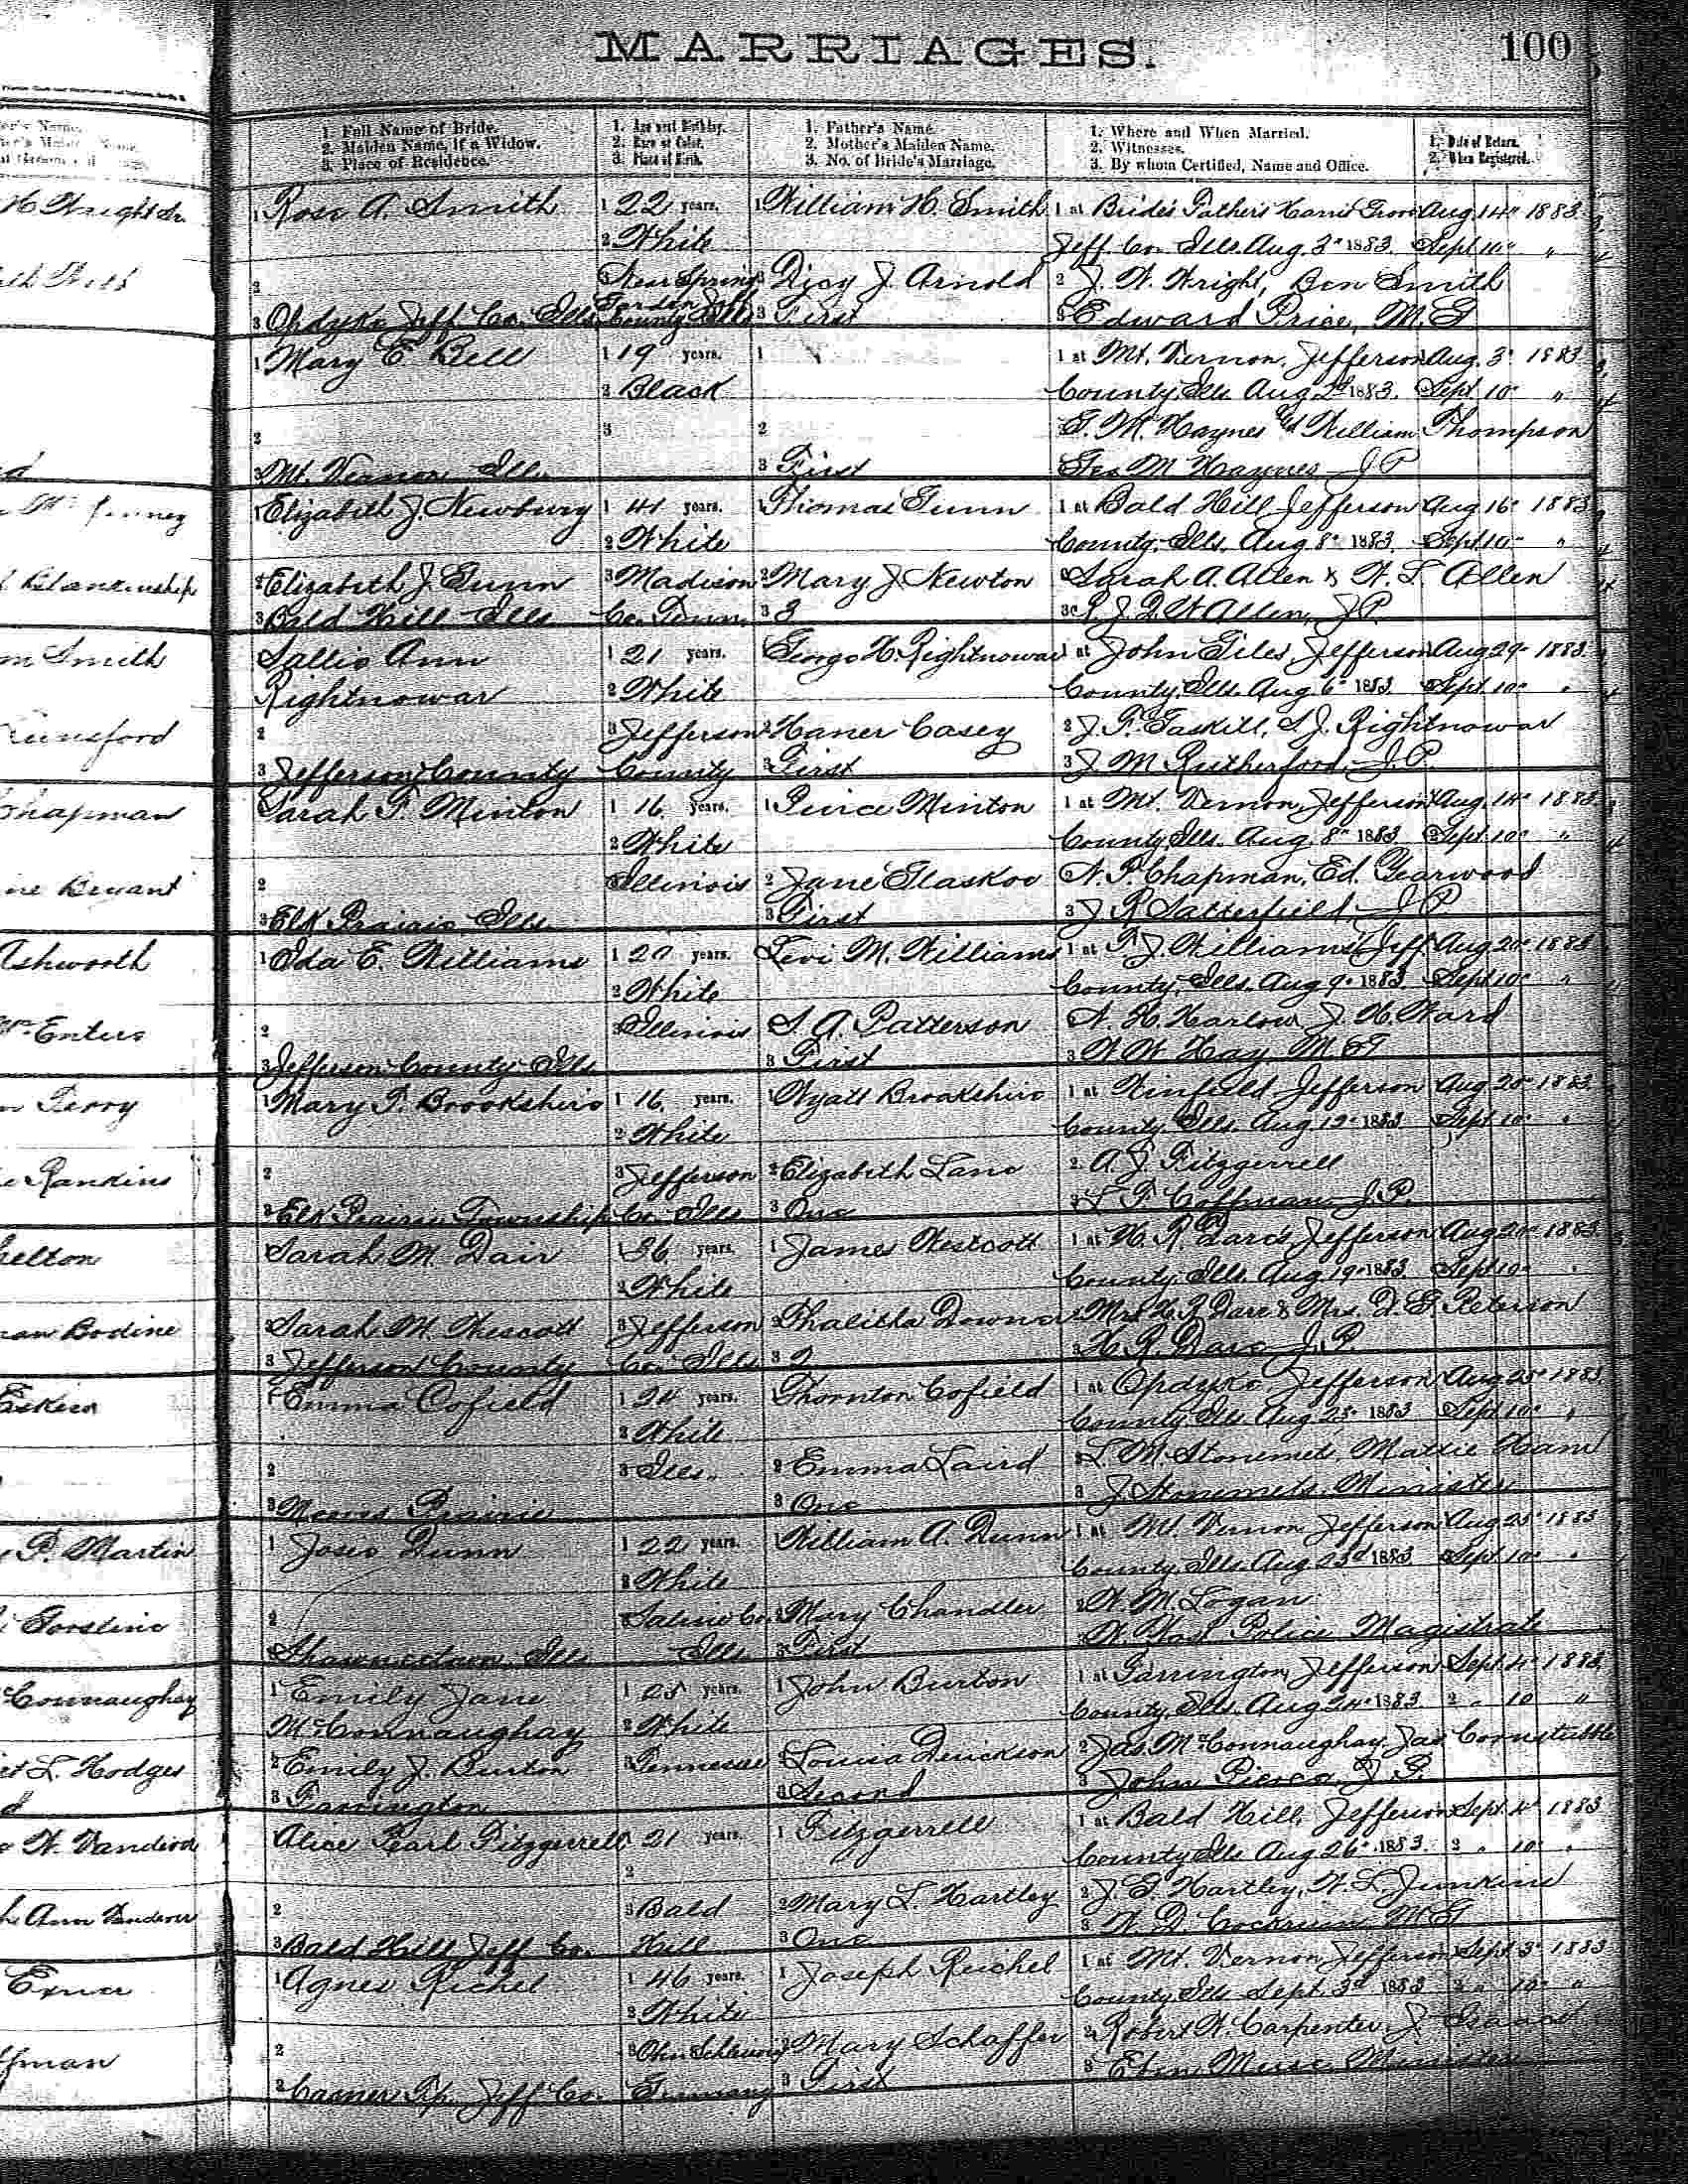 MARRIAGES. 100
1. Full Name of Bride.
2. Maiden Name, if a Widow.
3. Place of Residence.
1. Age next Birthday.
2. Race or Color.
3. Place of Birth.
1. Father's Name.
2. Mother's Maiden Name.
3. No. of Bride's Marriage.
1. Where and When Married.
2. Witnesses.
3. By whom Certified, Name and Office.
1. Date of Return.
2. When Registered.
1 Rose A. Smith 1 22 years. 1 William H. Smith 1 at Bride's Father's Aug. 14" 1883.
2 White Jeff. Co. Ills. Aug. 3" 1883. Sept 10" "
2 3 Near Spring 2 Dicy J. Arnold 2 J. W. Wright, Ben Smith
3 Opdyke Jeff Co. Ills. Garden Jeff County Ills 3 First 3 Edward Price, M.G
1 Mary E. Bell 1 19 years. 1 1 at Mt. Vernon, Jefferson Aug. 3" 1883
2 Black County, Ills. Aug 2d 1883. Sept 10" "
2 3 2 G. M. Haynes William Thompson
3 Mt. Vernon Ills 3 First Geo M Haynes J P
1 Elizabeth J. Newbury 1 41 years. 1 Thomas Gunn 1 at Bald Hill Jefferson Aug 16" 1883
2 White County, Ills. Aug 8" 1883. Sept 10" "
2 Elizabeth J. Gunn 3 Madison 2 Mary J. Newton 2 Sarah A. Allen & W. L. Allen
3 Bald Hill Ills Co. Tenn. 3 3 Allen, J.P.
Sallie Ann 1 21 years. George W. Rightnowar 1 at John Giles, Jefferson Aug 29" 1883.
Rightnowar 2 White County, Ills. Aug 6" 1883. Sept. 10" "
2 3 Jefferson 2 Haner Casey 2 J. F. Gaskill, S. J. Rightnowar
3 Jefferson County County 3 First 3 J. M Rutherford, J.P
Sarah F. Minton 1 16 years. 1 Peirce Minton 1 at Mt. Vernon, Jefferson Aug. 14" 1883
2 White County Ills. Aug. 8" 1883 2 Sept. 10" "
2 3 Illinois 2 Jane Glaskoo A. P. Chapman, Ed. Yearwood
3 Elk Prairie, Ills. 3 First 3 J R Satterfield, J P
1 Ida E. Williams 1 20 years. Levi M. Williams 1 at Williams' Jeff Aug 20" 1883
2 White County, Ills. Aug 9" 1883. Sept 10" "
2 3 Illinois S. A. Patterson W. H. Harlow, J. H. Ward
3 Jefferson County Ills 3 First 3 W. W. Hay M.G
1 Mary F. Brookshire 1 16 years. 1 Wyatt Brookshire 1 at Winfield Jefferson Aug 20" 1883.
2 White County, Ills. Aug 12" 1883 Sept 10" "
2 3 Jefferson 2 Elizabeth Lane 2 A. J. Fitzgerrell
3 Elk Prairie Township Co. Ills 3 One Coffman J.P.
Sarah M. Dair 1 36 years. 1 James Westcott 1 at H. R. Dare's Jefferson Aug 20" 1883.
2 White County Ills. Aug 19" 1883. Sept 10" "
2 Sarah M. Wescott 3 Jefferson 2 Thalitha Downer 2 Mrs H. R Dare & Mrs. D. G. Peterson
3 Jefferson County Co. Ills 3 2 3 H. R. Dare J. P.
1 Emma Cofield 1 24 years. Thornton Cofield 1 at Opdyke, Jefferson Aug 25" 1883
2 White County Ills Aug 23" 1883 Sept 10" "
2 3 Ills. 2 Emma Laird 2 L. M. Stonemets, Mattie Ham
3 Moores Prairie 3 One 3 J. Stonemets, Minister
1 Josie Dunn 1 22 years. William A. Dunn 1 at Mt. Vernon Jefferson Aug 25" 1883
2 White County Ills. Aug 23d 1883 Sept. 10" "
2 3 Saline Co. 2 Mary Chandler 2 W. M. Logan
Shawneetown, Ills Ills 3 First Police Magistrate
1 Emily Jane 1 25 years. 1 John Burton 1 at Farrington, Jefferson Sept. 4" 1883
McConnaughay 2 White County, Ills. Aug 24" 1883. 2 " 10 "
2 Emily J. Burton 3 Tennessee 2 Louisa Derickson 2 Jas. McConnaughay, Jas Cornstubble
3 Farrington 3 Second 3 John Pierce J. P.
Alice Earl Fitzgerrell 1 21 years. 1 Fitzgerrell 1 at Bald Hill, Jefferson Sept. 4" 1883
2 County Ills Aug 26" 1883. 2 " 10" "
2 3 Bald 2 Mary L. Hartley 2 J. G. Hartley, W. L. Junkins
3 Bald Hill Jeff Co. Hill 3 One 3 W. D. Cockrum M.G
1 Agnes Richel 1 46 years. 1 Joseph Reichel 1 at Mt. Vernon Jefferson Sept. 3" 1883
2 White County Ills Sept. 3d 1883 2 " 10" "
2 2 Mary Schaffer 2 Robert W. Carpenter, J
Casner Tp. Jeff Co. Germany 3 First 3 Minister
H Wright Sr.
Blankenship
Smith
Lunsford
Chapman
Bryant
Ashworth
Enters
Perry
Rankins
helton
Bodine
Eskew
P. Martin
Connaughay
L. Hodges
W. Vandiver
Ann Vandever
Exner
ffman